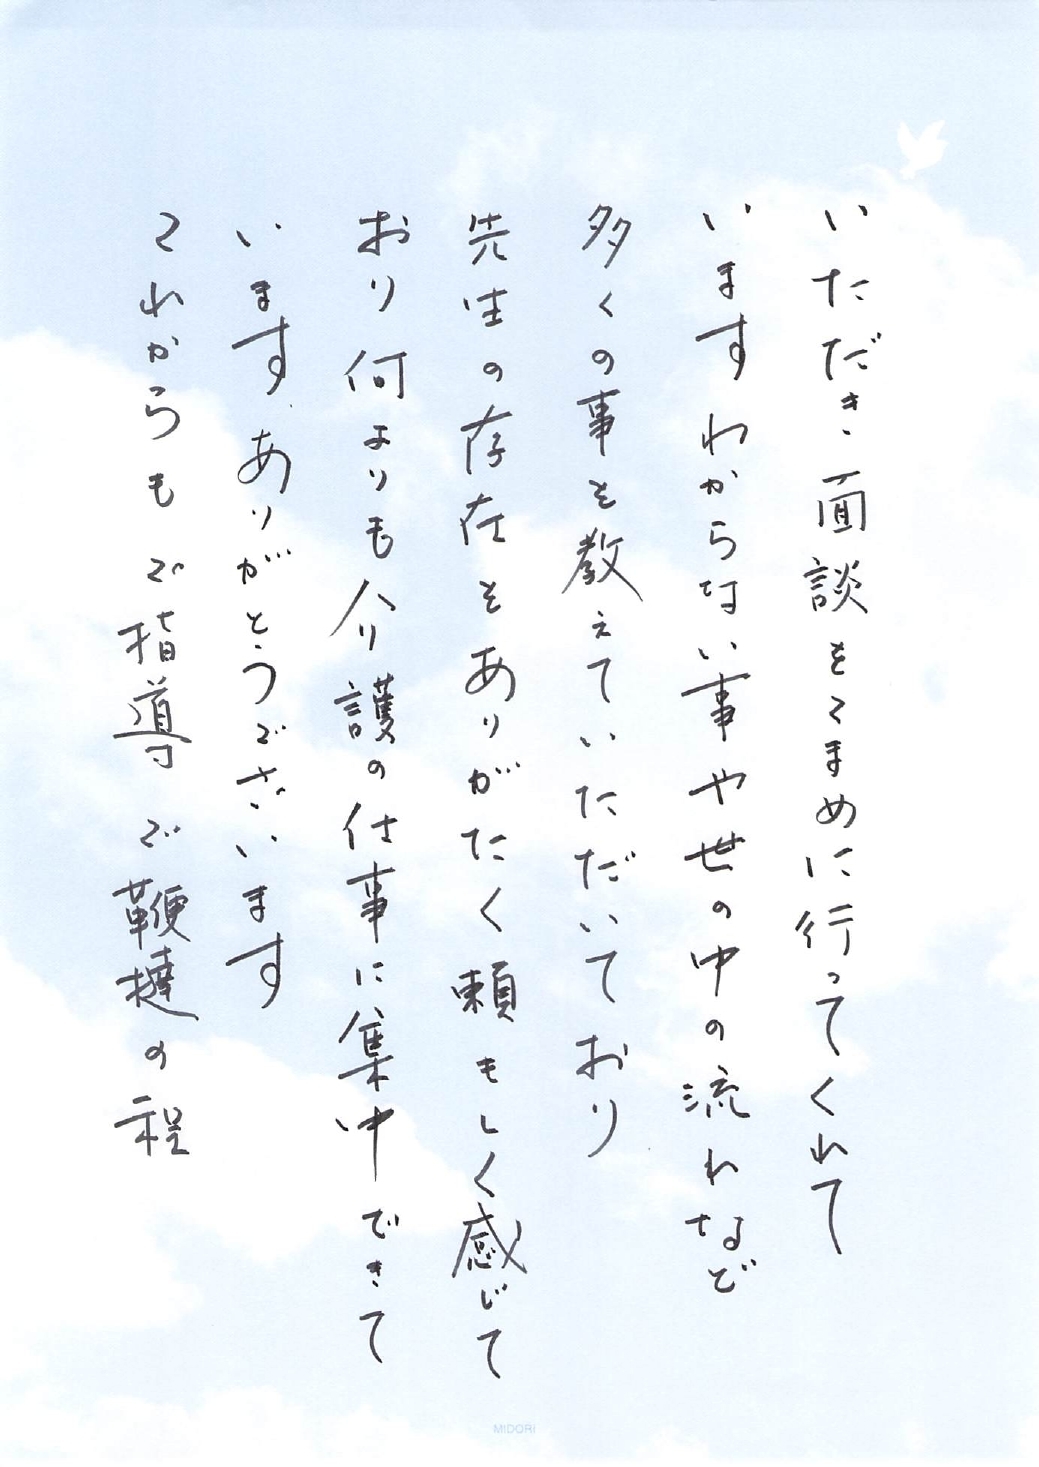 いただき、面談をこまめに行ってくれて
います わからない事や世の中の流れなど
多くの事を教えていただいており
先生の存在をありがたく頼もしく感じて
おり何よりも介護の仕事に集中できて
います。ありがとうございます
これからもご指導ご鞭撻の程
MIDORI